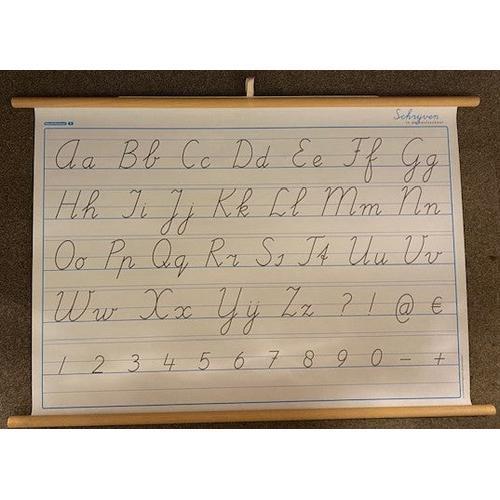 Schrijven
in de basisschool
Aa Bb Cc Dd Ee Ff Gg
Hh Ii Jj Kk Ll Mm Nn
Oo Pp Qq Rr Ss Tt Uu Vv
Ww Xx Yÿ Zz ? ! @ €
1 2 3 4 5 6 7 8 9 0 - +